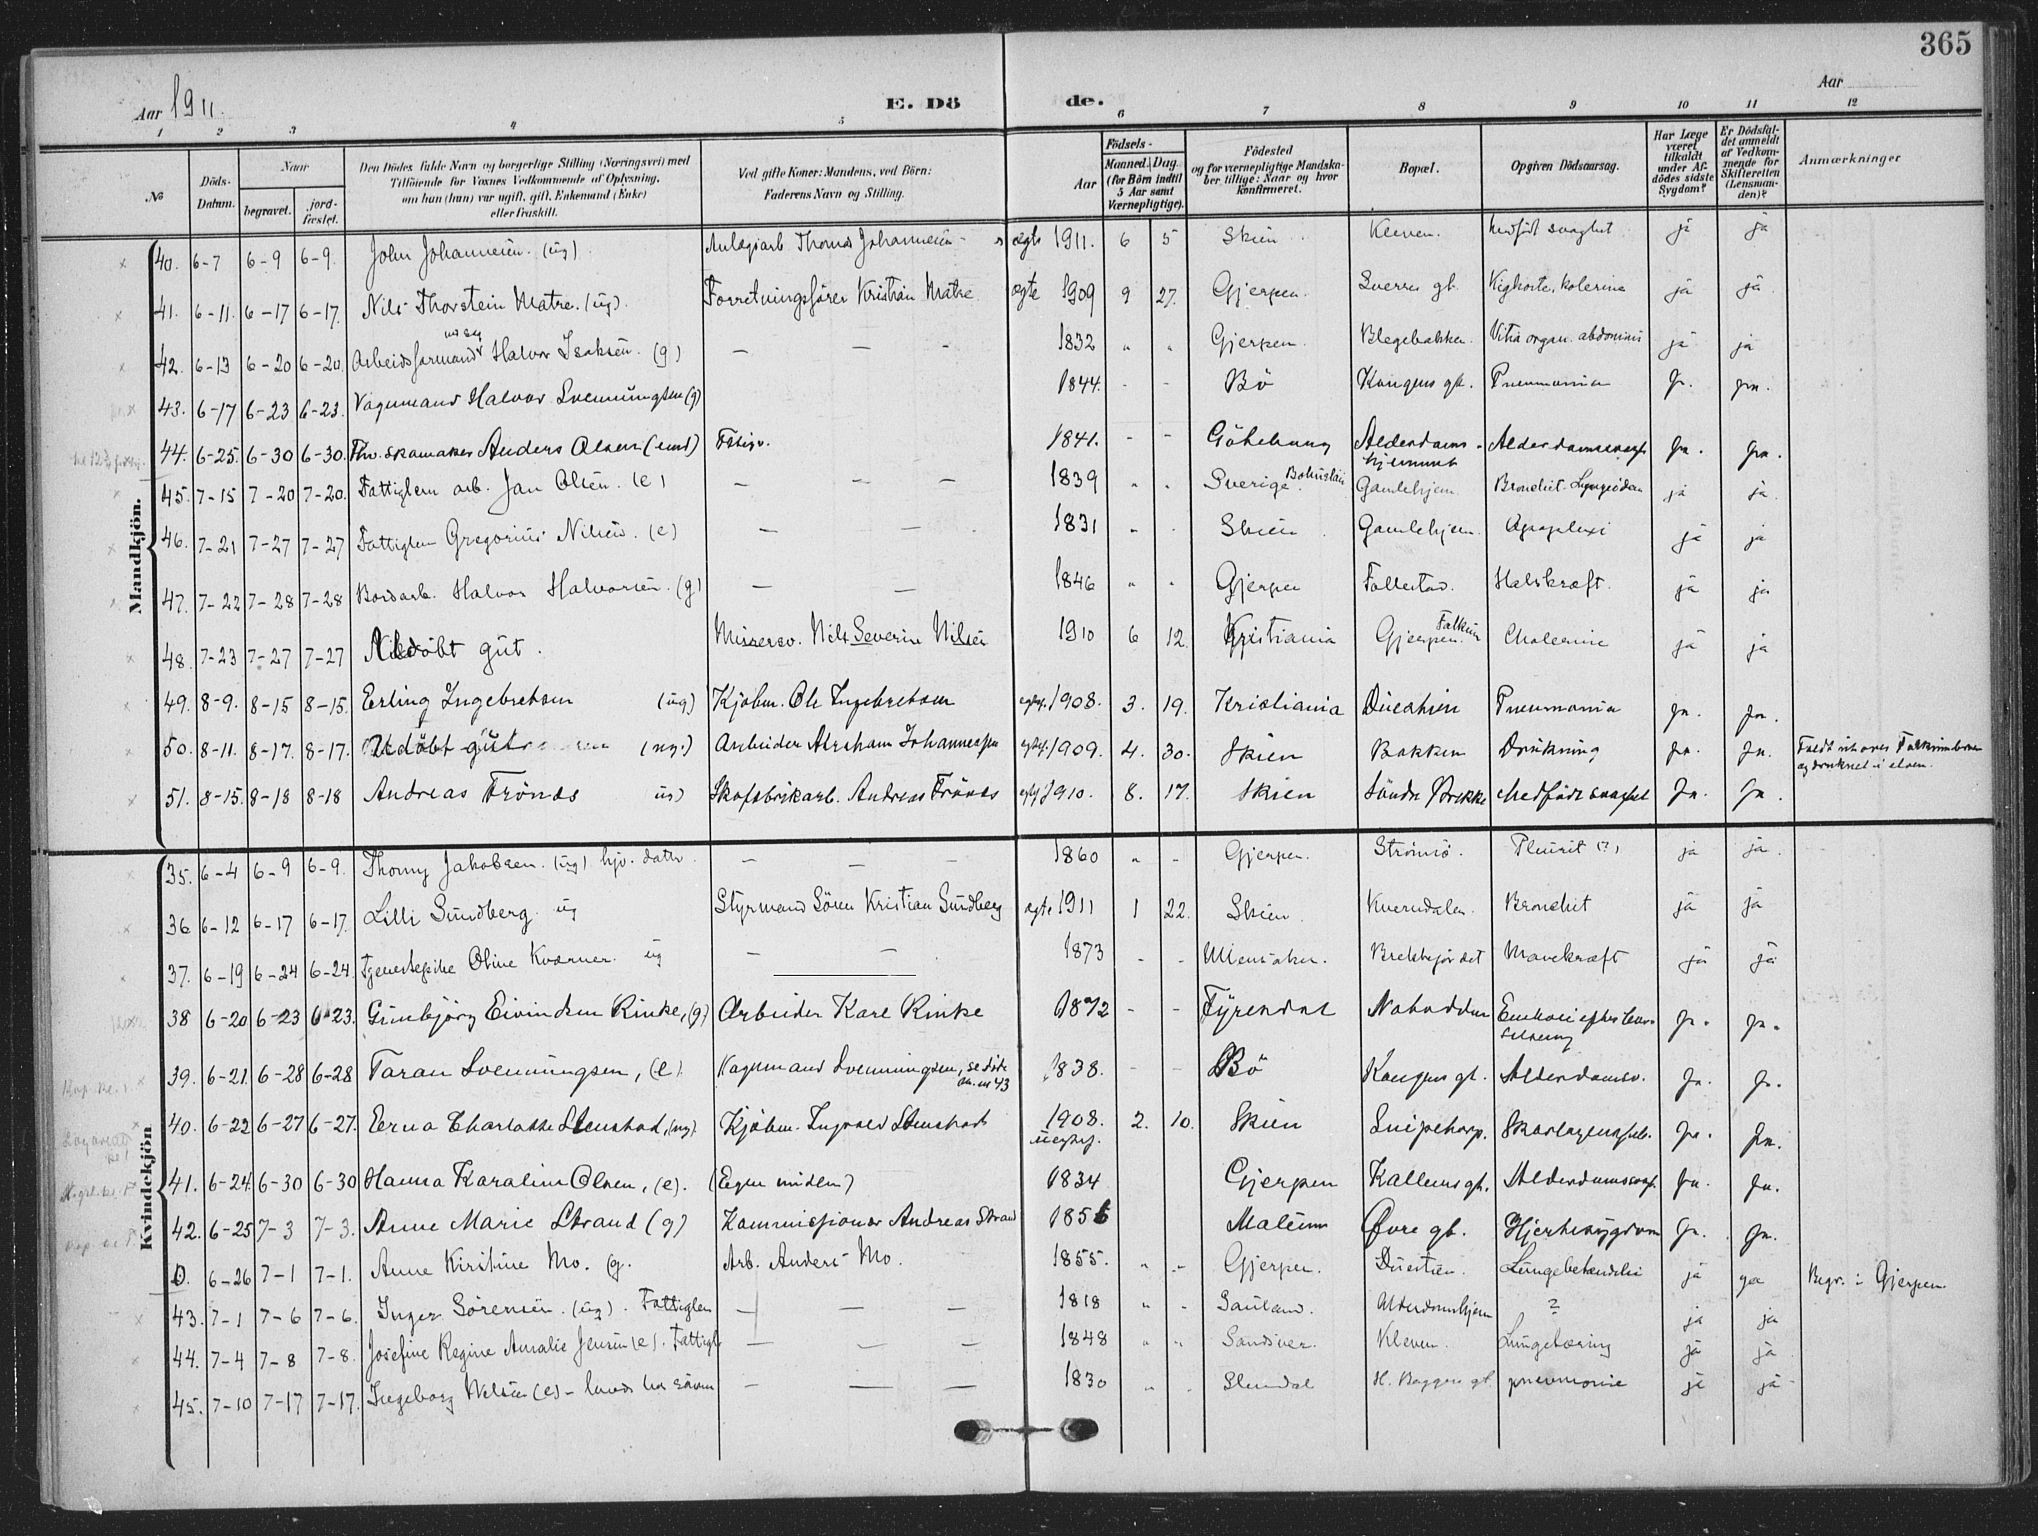 365
Aar 1911.
E. Döde.
Aar
1 2 3 4 5 6 7 8 9 10 11 12
№
Döds-Datum.
Naar
begravet.
jord-fæstet.
Den Dödes fulde Navn og borgerlige Stilling (Næringsvei) med Tilföiende for Voxnes Vedkommende af Oplysning, om han (hun) var ugift, gift, Enkemand (Enke) eller fraskilt.
Ved gifte Koner: Mandens, ved Börn: Faderens Navn og Stilling.
Födsels-
Aar
Maaned. Dag.
(for Börn indtil 5 Aar samt Værnepligtige).
Födested og for værnepligtige Mandskaber tillige: Naar og hvor konfirmeret.
Bopæl.
Opgiven Dödsaarsag.
Har Læge været tilkaldt under Afdödes sidste Sygdom?
Er Dödsfaldet anmeldt af Vedkommende for Skifteretten (Lensmanden)?
Anmærkninger
Mandkjön.
40. 6-7 6-9 6-9. John Johannesen. (ug) Anlægsarb. Thomas Johannesen ægte 1911. 6 5 Skien Kleven. Medfödt svaghet ja ja
41. 6-11. 6-17 6-17. Nils Thorstein Matre. (ug). Forretningsförer Kristian Matre ægte 1909 9 27. Gjerpen. Sverres gt. Kighoste, kolerine ja ja
42. 6-13 6-20 6-20. Arbeidsformand Halvor Isaksen. (g) — — - 1832 " " Gjerpen. Blegebakken. Vitia organ. abdominis ja ja
43. 6-17 6-23 6-23. Vognmand Halvor Svennungsen (g) 1844. - - Bö Kongens gt. Pneumonia Ja. ja.
44. 6-25. 6-30 6-30. Fhv. skomaker Anders Olsen (enk) Fattigv. 1841. - - Göteburg Alderdoms-hjemmet Alderdomssvagh. ja. ja.
45. 7-15 7-20 7-20. Fattiglem arb. Jan Olsen. (e) — — — 1839 " " Sverige Bohuslän Gamlehjem. Bronchit. Lungeödem ja ja.
46. 7-21 7-27 7-27 Fattiglem Gregorius Nilsen. (e) — — 1831 " " Skien Gamlehjem. Apoplexi ja ja
47. 7-22 7-28 7-28 Bordarb. Halvor Halvorsen. (g) — — 1846 " " Gjerpen Follestad. Halskræft. ja ja
48. 7-23 7-27 7-27 Udöbt gut. Murersv. Nils Severin Nilsen 1910 6 12. Kristiania Gjerpen. Falkum Cholerine ja ja
49. 8-9. 8-15 8-15. Erling Ingebretsen (ug) Kjöbm. Ole Ingebretsen 1908. 3. 19. Kristiania Duestien Pneumonia ja. ja.
50. 8-11. 8-17. 8-17. Udöbt gut (ug.) Arbeider Abraham Johannessen 1909. 4. 30. Skien Bakken Drukning ja. ja. Faldt ut over Falkumbroen og druknet i elven.
51. 8-15. 8-18 8-18 Andreas Frönæs ug) Skofabrikarb. Andreas Frönæs 1910. 8. 17. Skien Söndre Brekke Medfödt svaghet Ja. Ja.
Kvindekjön
35. 6-4 6-9 6-9. Thomy Jakobsen. (ug) hjv. datter. — — — 1860 " - Gjerpen. Strömö. Pleurit (?) ja ja.
36 6-12 6-17 6-17. Lilli Sundberg. ug Styrmand Sören Kristian Sundberg ægte 1911 1 22. Skien. Kverndalen. Bronchit ja ja
37. 6-19 6-24 6-24. Tjenestepike Oline Kværner. ug — — 1873 - - Ullensaker. Brekkejordet Mavekræft ja ja
38 6-20 6-23 6-23. Gunbjörg Eivindsen Rinke, (g) Arbeider Kare Rinke 1872 - - Fyresdal Notodden ja. ja.
39. 6-21. 6-28 6-28 Taran Svenningsen, (e). Vognmand Svenningsen, se döde M. nr 43 1838. - - Bö Kongens gt. Alderdomsv. Ja. Ja.
40. 6-22 6-27 6-27. Erna Charlotte Stenstad, (ug). Kjöbm. Ingvald Stenstad 1908. 2. 10. Skien Snipetorp. Skarlagensfeb. ja. Ja.
41. 6-24 6-30 6-30 Hanna Karoline Olsen, (e). (Egne midler) 1834 Gjerpen Kallems gt. Alderdomssvagh. Ja. Ja.
42. 6-25 7-3 7-3. Anne Marie Strand (g) Kommissionær Andreas Strand 1856 Melum Övre gt. Hjertesygdom Ja. Ja.
0. 6-26 7-1 7-1. Anne Kirstine Mo. (g. Arb. Anders Mo. 1855. " - Gjerpen. Duestien. Lungebetændelse ja ja Begr. i Gjerpen
43. 7-1 7-6 7-6. Inger Sörensen. (ug). Fattiglem — — — 1818 " - Sauland. Alderdomshjem ? ja ja
44. 7-4 7-8 7-8. Josefine Regine Amalie Jensen (e). Fattigl. — — — 1848 " " Sandsver. Kleven. Lungetæring ja ja
45. 7-10 7-17 7-17. Ingeborg Nilsen (e) — — — 1830 " . Slemdal H. Bagges gt. pneumonie ja ja